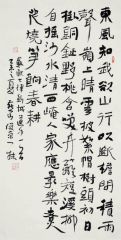 東風知我欲山行吹斷檐間積雨
聲嶺上晴雲披絮帽樹頭初日
掛銅鉦野桃含笑竹籬短溪柳
自搖沙水清西崦人家應最樂煮
芹燒筍餉春耕
蘇軾七律新城道中